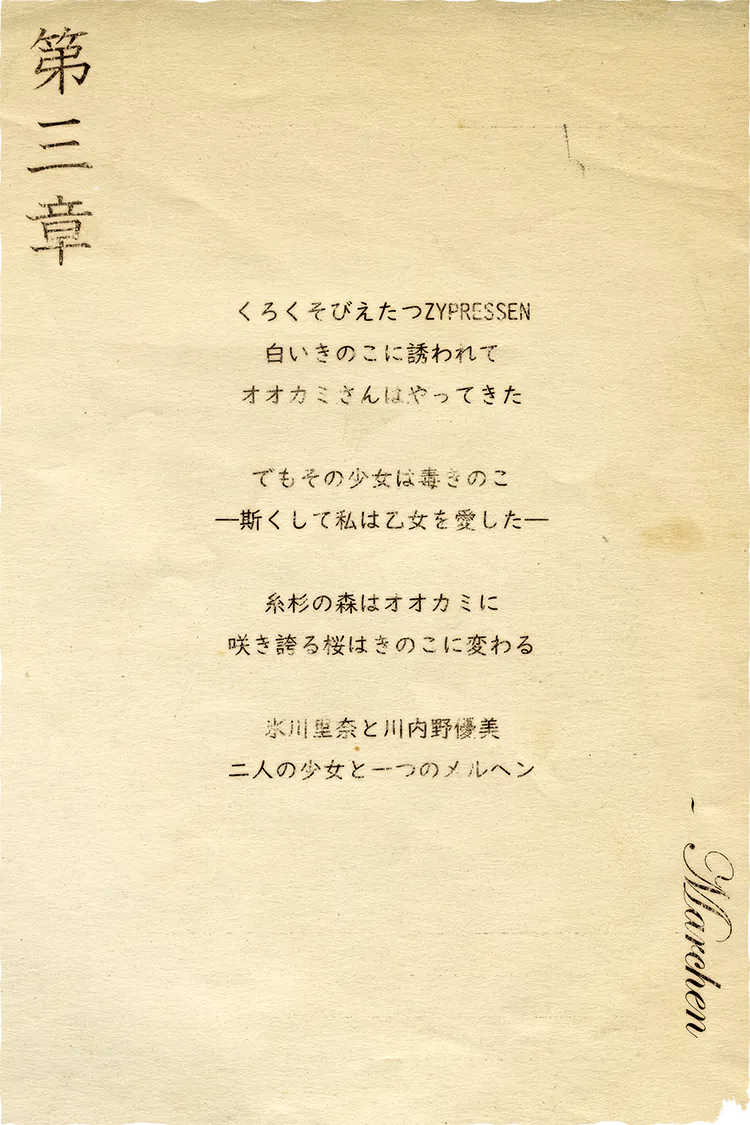 第三章
くろくそびえたつZYPRESSEN
白いきのこに誘われて
オオカミさんはやってきた
でもその少女は毒きのこ
―斯くして私は乙女を愛した―
糸杉の森はオオカミに
咲き誇る桜はきのこに変わる
氷川里奈と川内野優美
二人の少女と一つのメルヘン
~ Marchen